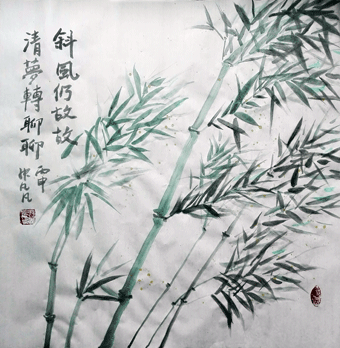 斜風仍故故
清夢轉聊聊
丙申
張凡凡